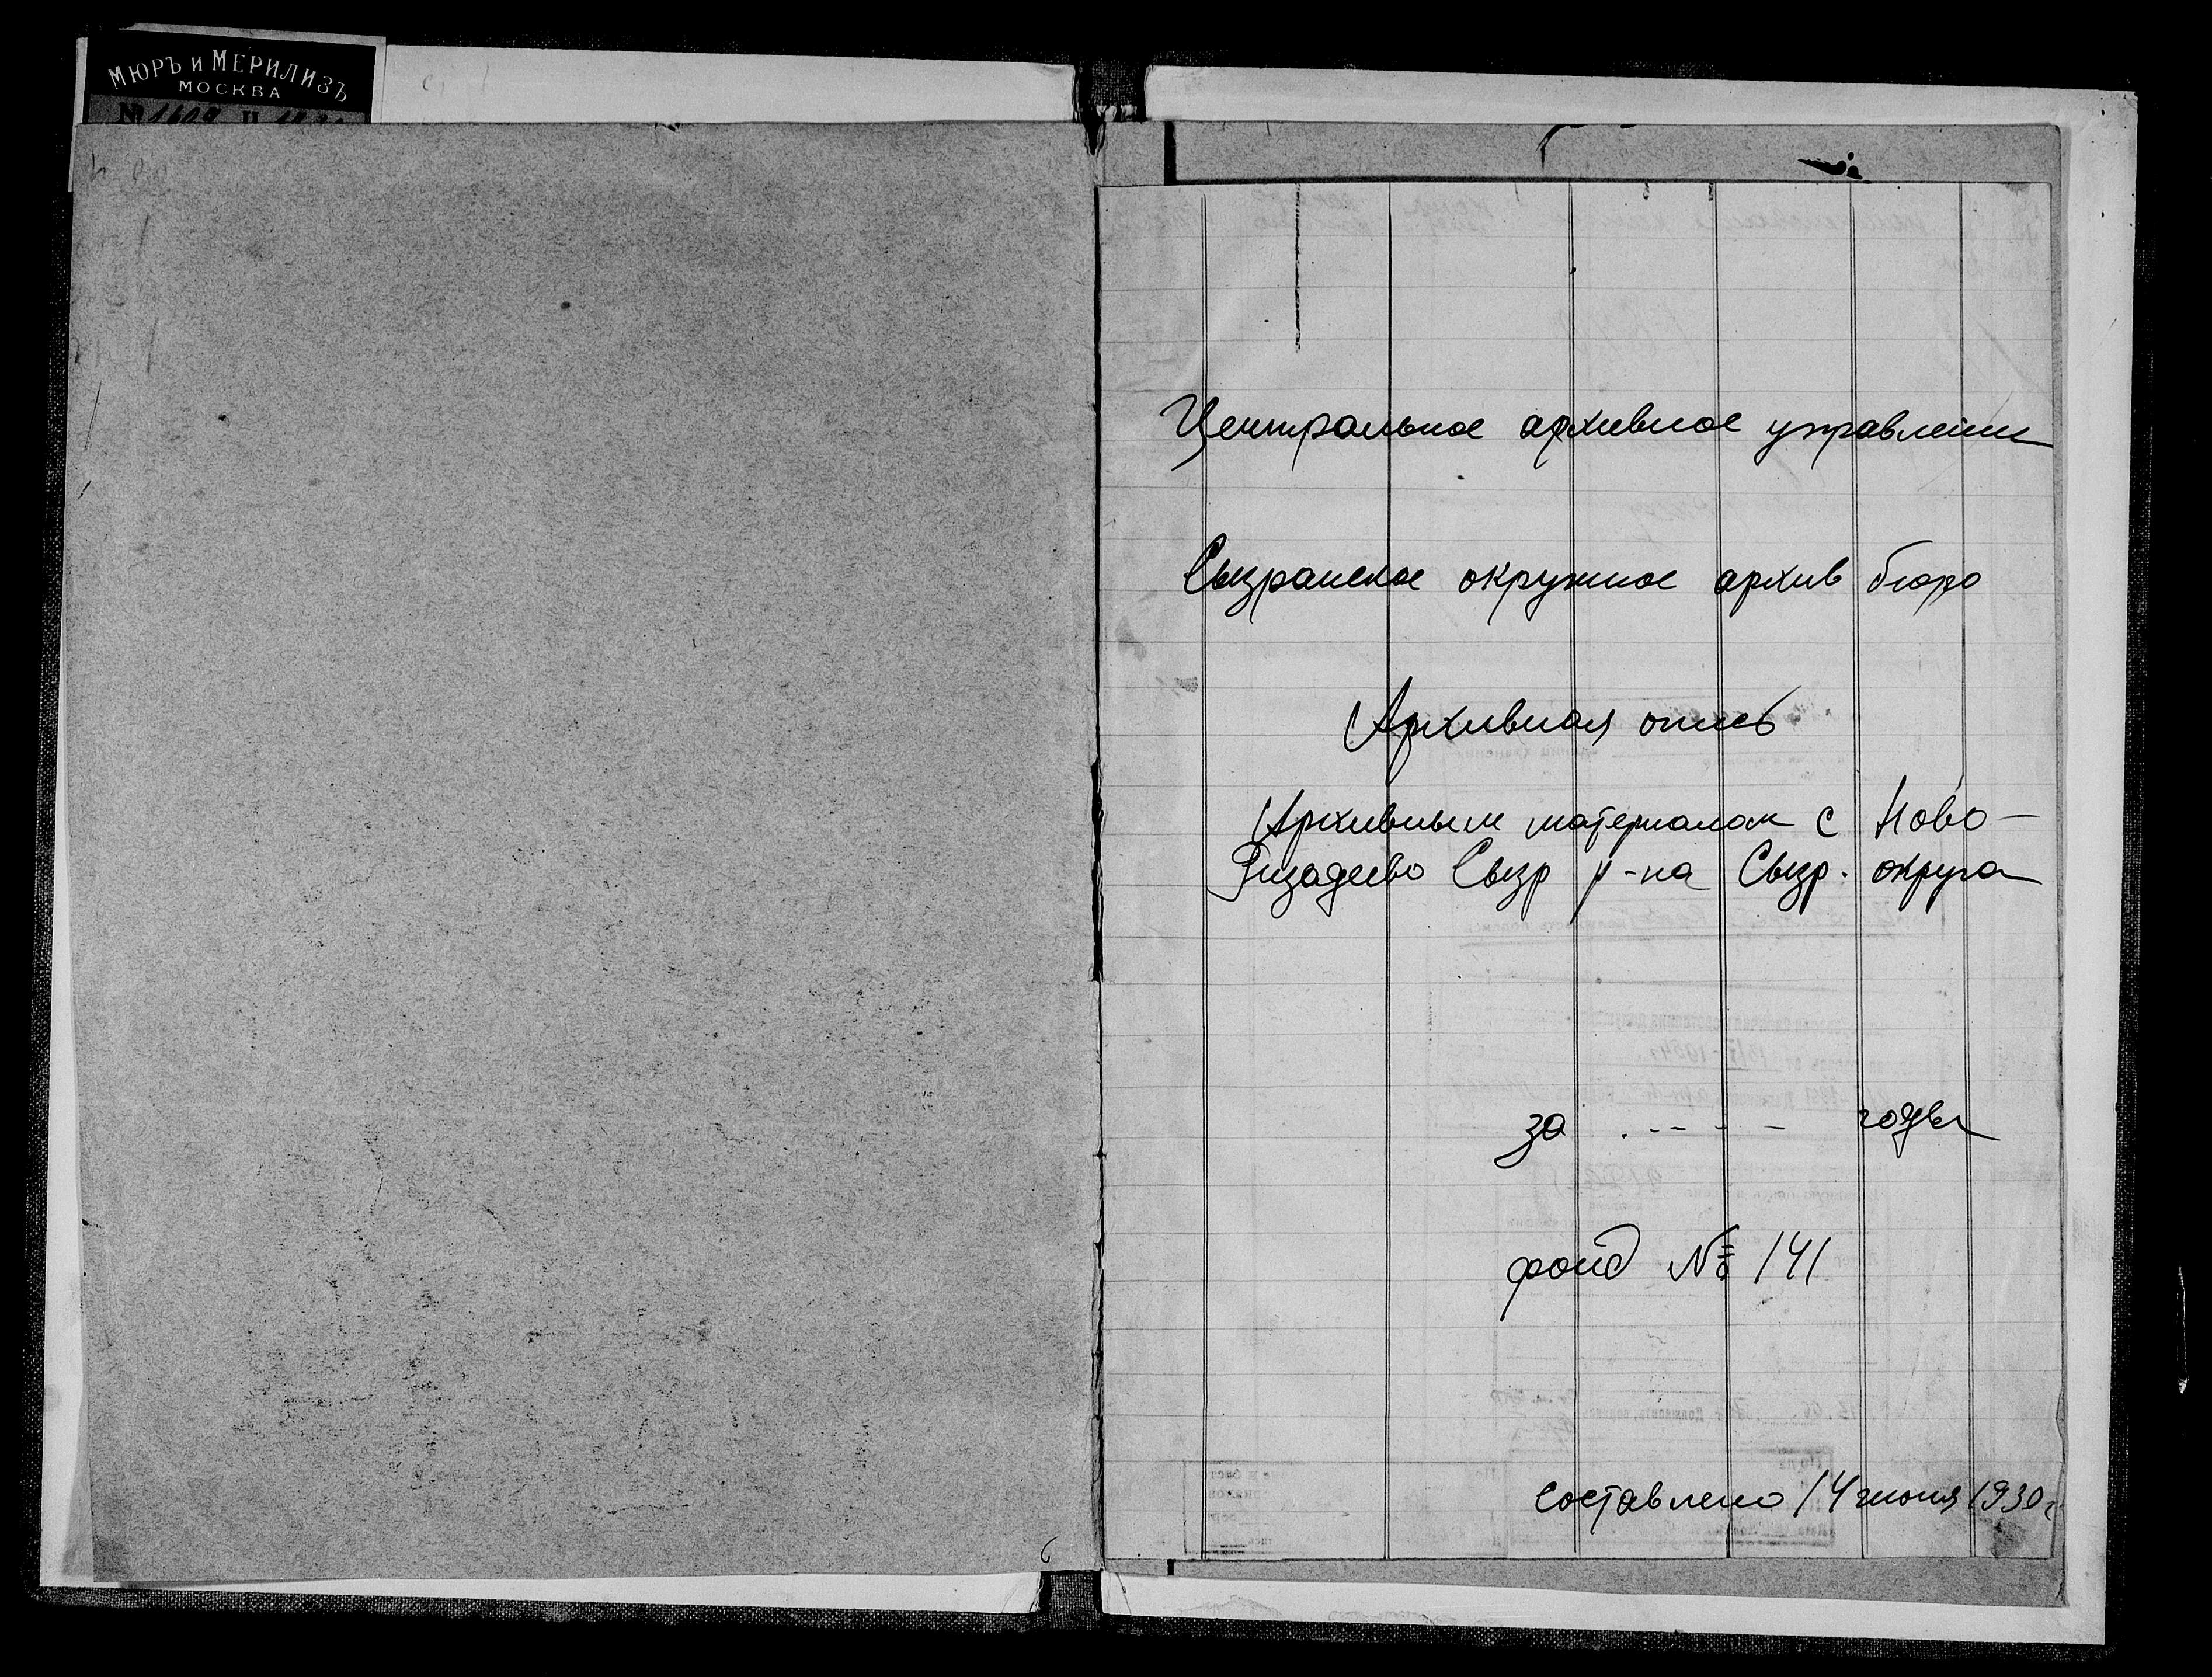 МЮРЪ и МЕРИЛИЗЪ
МОСКВА
Центральное архивное управление
Сызранское окружное архив бюро
Архивная опись
Архивным материалам с Ново-
Ризадеево Сызр р-на Сызр. округа
за . - - - - годы
фонд № 141
составлено 14 июня 1930 г